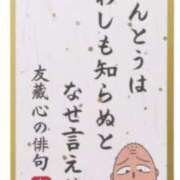 んとうは
わしも知らぬと
なぜ言え
友蔵心の俳句